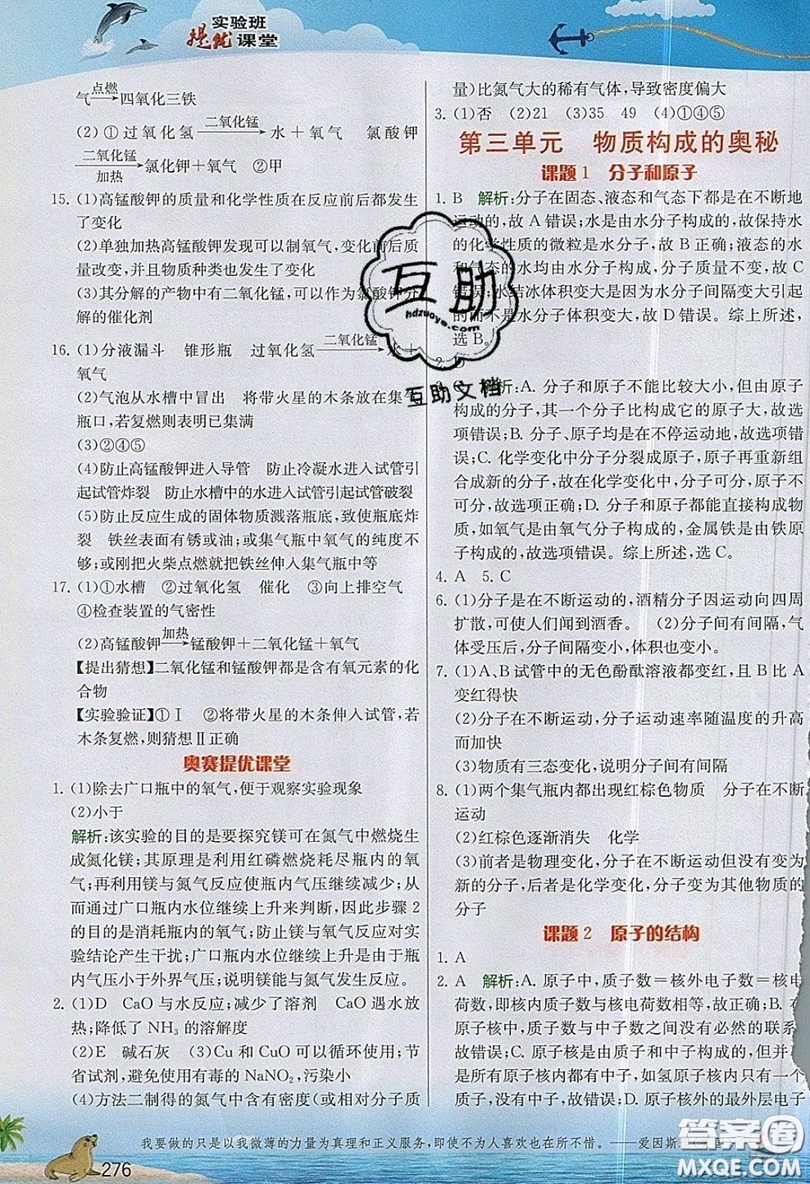 实验班
提优课堂
气 点燃 四氧化三铁
(2) ①过氧化氢 二氧化锰 水+氧气 氯酸钾
二氧化锰 加热 氯化钾+氧气 ②甲
15. (1)高锰酸钾的质量和化学性质在反应前后都发生
了变化
(2)单独加热高锰酸钾发现可以制氧气,变化前后质
量改变,并且物质种类也发生了变化
(3)其分解的产物中有二氧化锰,可以作为氯酸钾分
解的催化剂
16. (1)分液漏斗 锥形瓶 过氧化氢 二氧化锰 水+
氧气
(2)气泡从水槽中冒出 将带火星的木条放在集气
瓶口,若复燃则表明已集满
(3)②④⑤
(4)防止高锰酸钾进入导管 防止冷凝水进入试管引
起试管炸裂 防止水槽中的水进入试管引起试管破裂
(5)防止反应生成的固体物质溅落瓶底,致使瓶底炸
裂 铁丝表面有锈或油;或集气瓶中氧气的纯度不
够;或刚把火柴点燃就把铁丝伸入集气瓶中等
17. (1)①水槽 ②过氧化氢 催化 ③向上排空气
④检查装置的气密性
(2)高锰酸钾 加热 锰酸钾+二氧化锰+氧气
【提出猜想】二氧化锰和锰酸钾都是含有氧元素的化
合物
【实验验证】①Ⅰ ②将带火星的木条伸入试管,若
木条复燃,则猜想Ⅱ正确
奥赛提优课堂
1. (1)除去广口瓶中的氧气,便于观察实验现象
(2)小于
解析:该实验的目的是要探究镁可在氮气中燃烧生
成氮化镁;其原理是利用红磷燃烧耗尽瓶内的氧
气;再利用镁与氮气反应使瓶内气压继续减少;从
而通过广口瓶内水位继续上升来判断,因此步骤2
的目的是消耗瓶内的氧气;防止镁与氧气反应对实
验结论产生干扰;广口瓶内水位继续上升是由于瓶
内气压小于外界气压;说明镁能与氮气发生反应.
2. (1)D CaO与水反应;减少了溶剂 CaO遇水放
热;降低了NH₃的溶解度
(2)E 碱石灰 (3)Cu和CuO可以循环使用;节
省试剂,避免使用有毒的NaNO₂,污染小
(4)方法二制得的氮气中含有密度(或相对分子质
量)比氮气大的稀有气体,导致密度偏大
3. (1)否 (2)21 (3)35 49 (4)①④⑤
第三单元 物质构成的奥秘
课题1 分子和原子
1. B 解析:分子在固态、液态和气态下都是在不断地
运动的,故A错误;水是由水分子构成的,故保持水
的化学性质的微粒是水分子,故B正确;液态的水
和气态的水均由水分子构成,分子质量不变,故C
错误;水结冰体积变大是因为水分子间隔变大引起
的而不是水分子体积变大,故D错误。综上所述,
选B。
2.
解析:A.分子和原子不能比较大小,但由原子
构成的分子,其一个分子比构成它的原子大,故选
项错误;B.分子、原子都是在不停运动地,故选项错
误;C.化学变化中分子分裂成原子,原子再重新组
合成新的分子,故在化学变化中,分子可分,原子不
可分,故选项正确;D.分子和原子都能直接构成物
质,如氧气是由氧气分子构成的,金属铁是由铁原
子构成的,故选项错误。综上所述,选C。
4. A 5. C
6. (1)分子是在不断运动的,酒精分子因运动向四周
扩散,可使人们闻到酒香。 (2)分子间有间隔,气
体受压后,分子间隔变小,体积也变小。
7. (1)A、B试管中的无色酚酞溶液都变红,且B比A
变红得快
(2)分子在不断运动,分子运动速率随温度的升高
而加快
(3)物质有三态变化,说明分子间有间隔
8. (1)两个集气瓶内都出现红棕色物质 分子在不断
运动
(2)红棕色逐渐消失 化学
(3)前者是物理变化,分子在不断运动但没有变为
新的分子,后者是化学变化,分子变为其他物质的
分子
课题2 原子的结构
1. A
2. A 解析:A.原子中,质子数=核外电子数=核电
荷数,即核内质子数与核电荷数相等,故正确;B.在
原子核中,质子数与中子数之间没有必然的联系,
故错误;C.原子核是由质子和中子构成的,但并
是所有的原子核都是如此,如氢原子核内只有一
质子而没有中子,故错误;D.原子的最外层电子
互助
hdzuoye.com
互助文档
我要做的只是以我微薄的力量为真理和正义服务,即使不为人喜欢也在所不惜。——爱因斯
276
答案圈
MXQE.COM